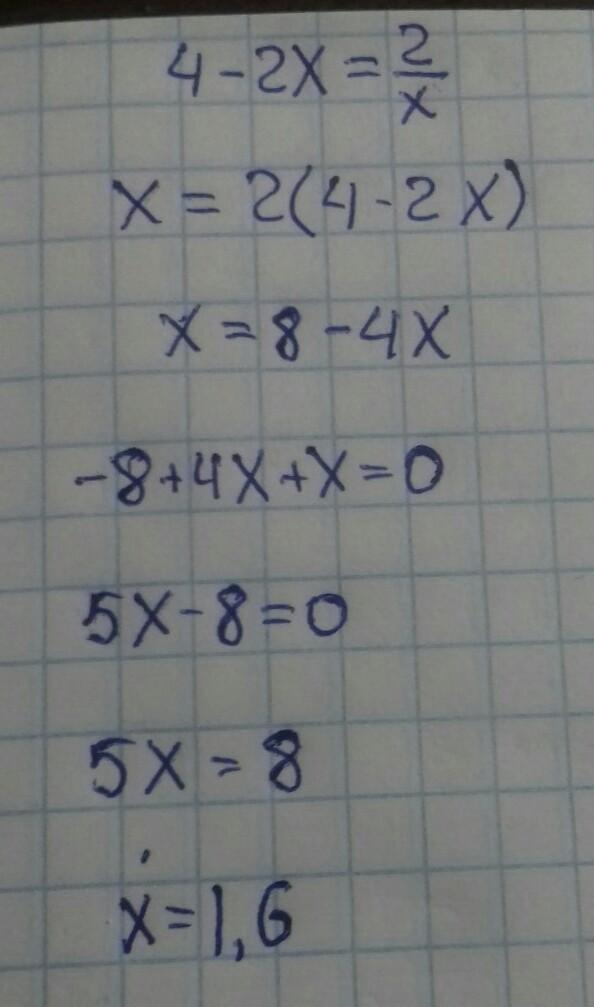 4-2x=2/x
x=2(4-2x)
x=8-4x
-8+4x+x=0
5x-8=0
5x=8
x=1,6